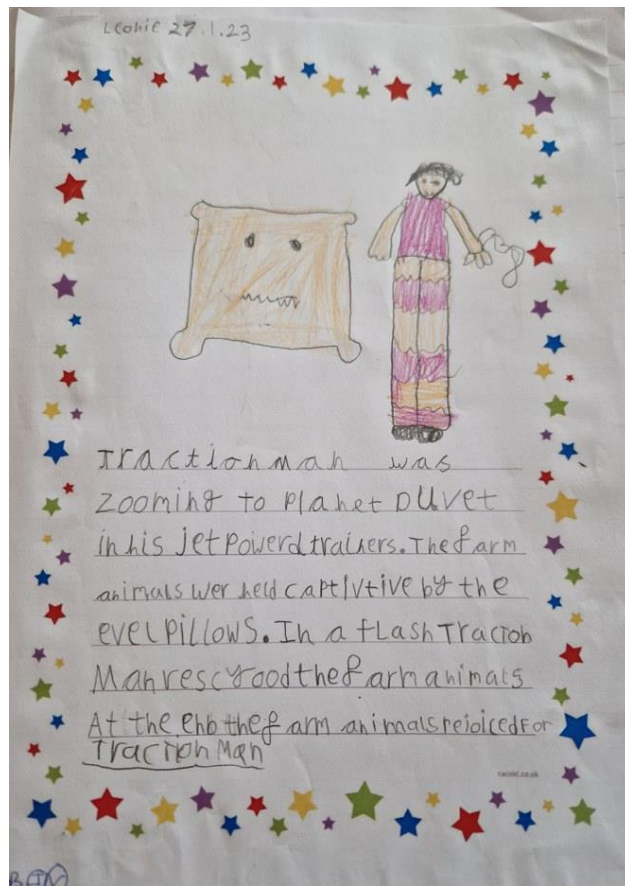 Leonie 27.1.23
Tractionman was
zooming to Planet DUvet
in his jetPowerd trainers. The farm
animals wer held captivtive by the
evel Pillows. In a flash Traction
Man rescyood the farm animals
At the enb the farm animals rejoiced For
Traction Man
twinkl.co.uk